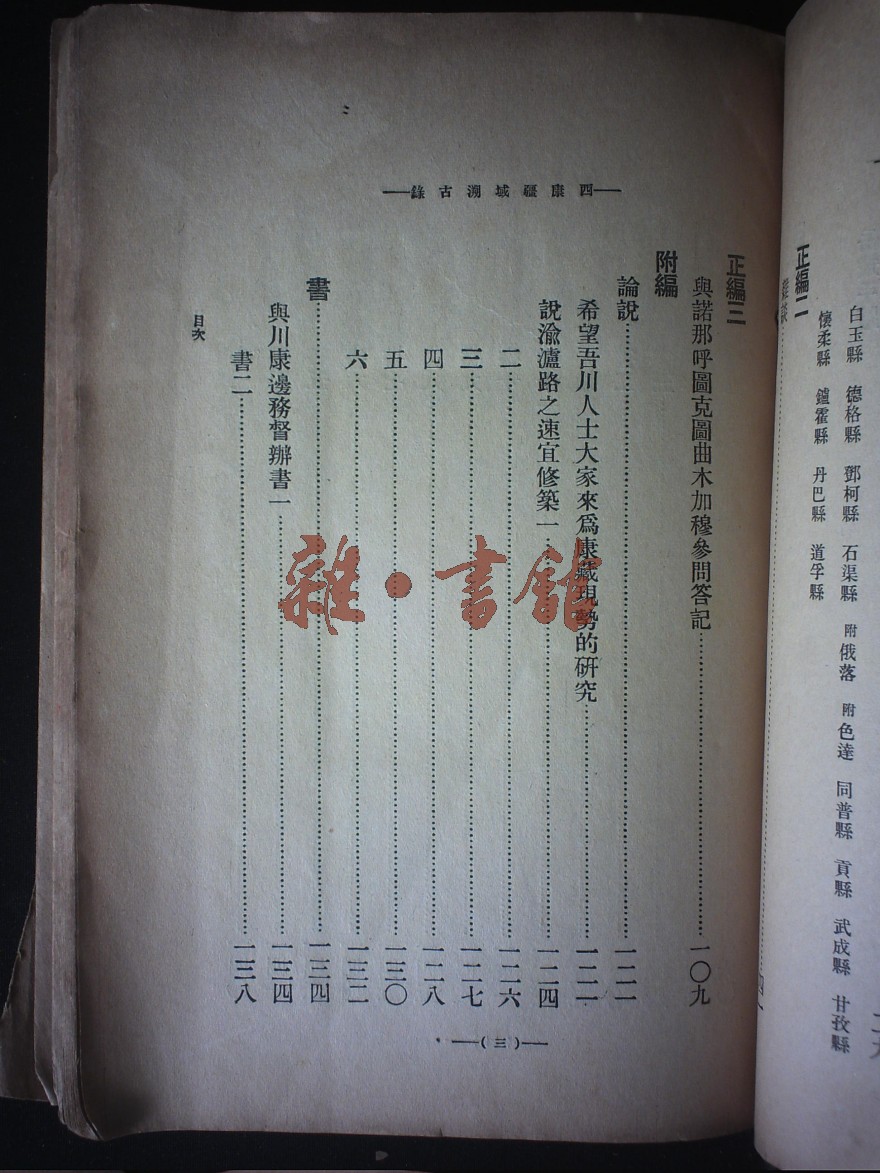 白玉縣 德格縣 鄧柯縣 石渠縣 附俄落 附色達 同普縣 貢縣 武成縣 甘孜縣
懷柔縣 鑪霍縣 丹巴縣 道孚縣
正編二
西康疆域溯古錄
正編三
與諾那呼圖克圖曲木加穆參問答記……一〇九
附編
論說……一二一
希望吾川人士大家來爲康藏現勢的研究……一二一
說渝瀘路之速宜修築一……一二四
二……一二六
三……一二七
四……一二八
五……一三〇
六……一三二
書……一三四
與川康邊務督辦書一……一三四
書二……一三八
目次
(三)
雜·書館